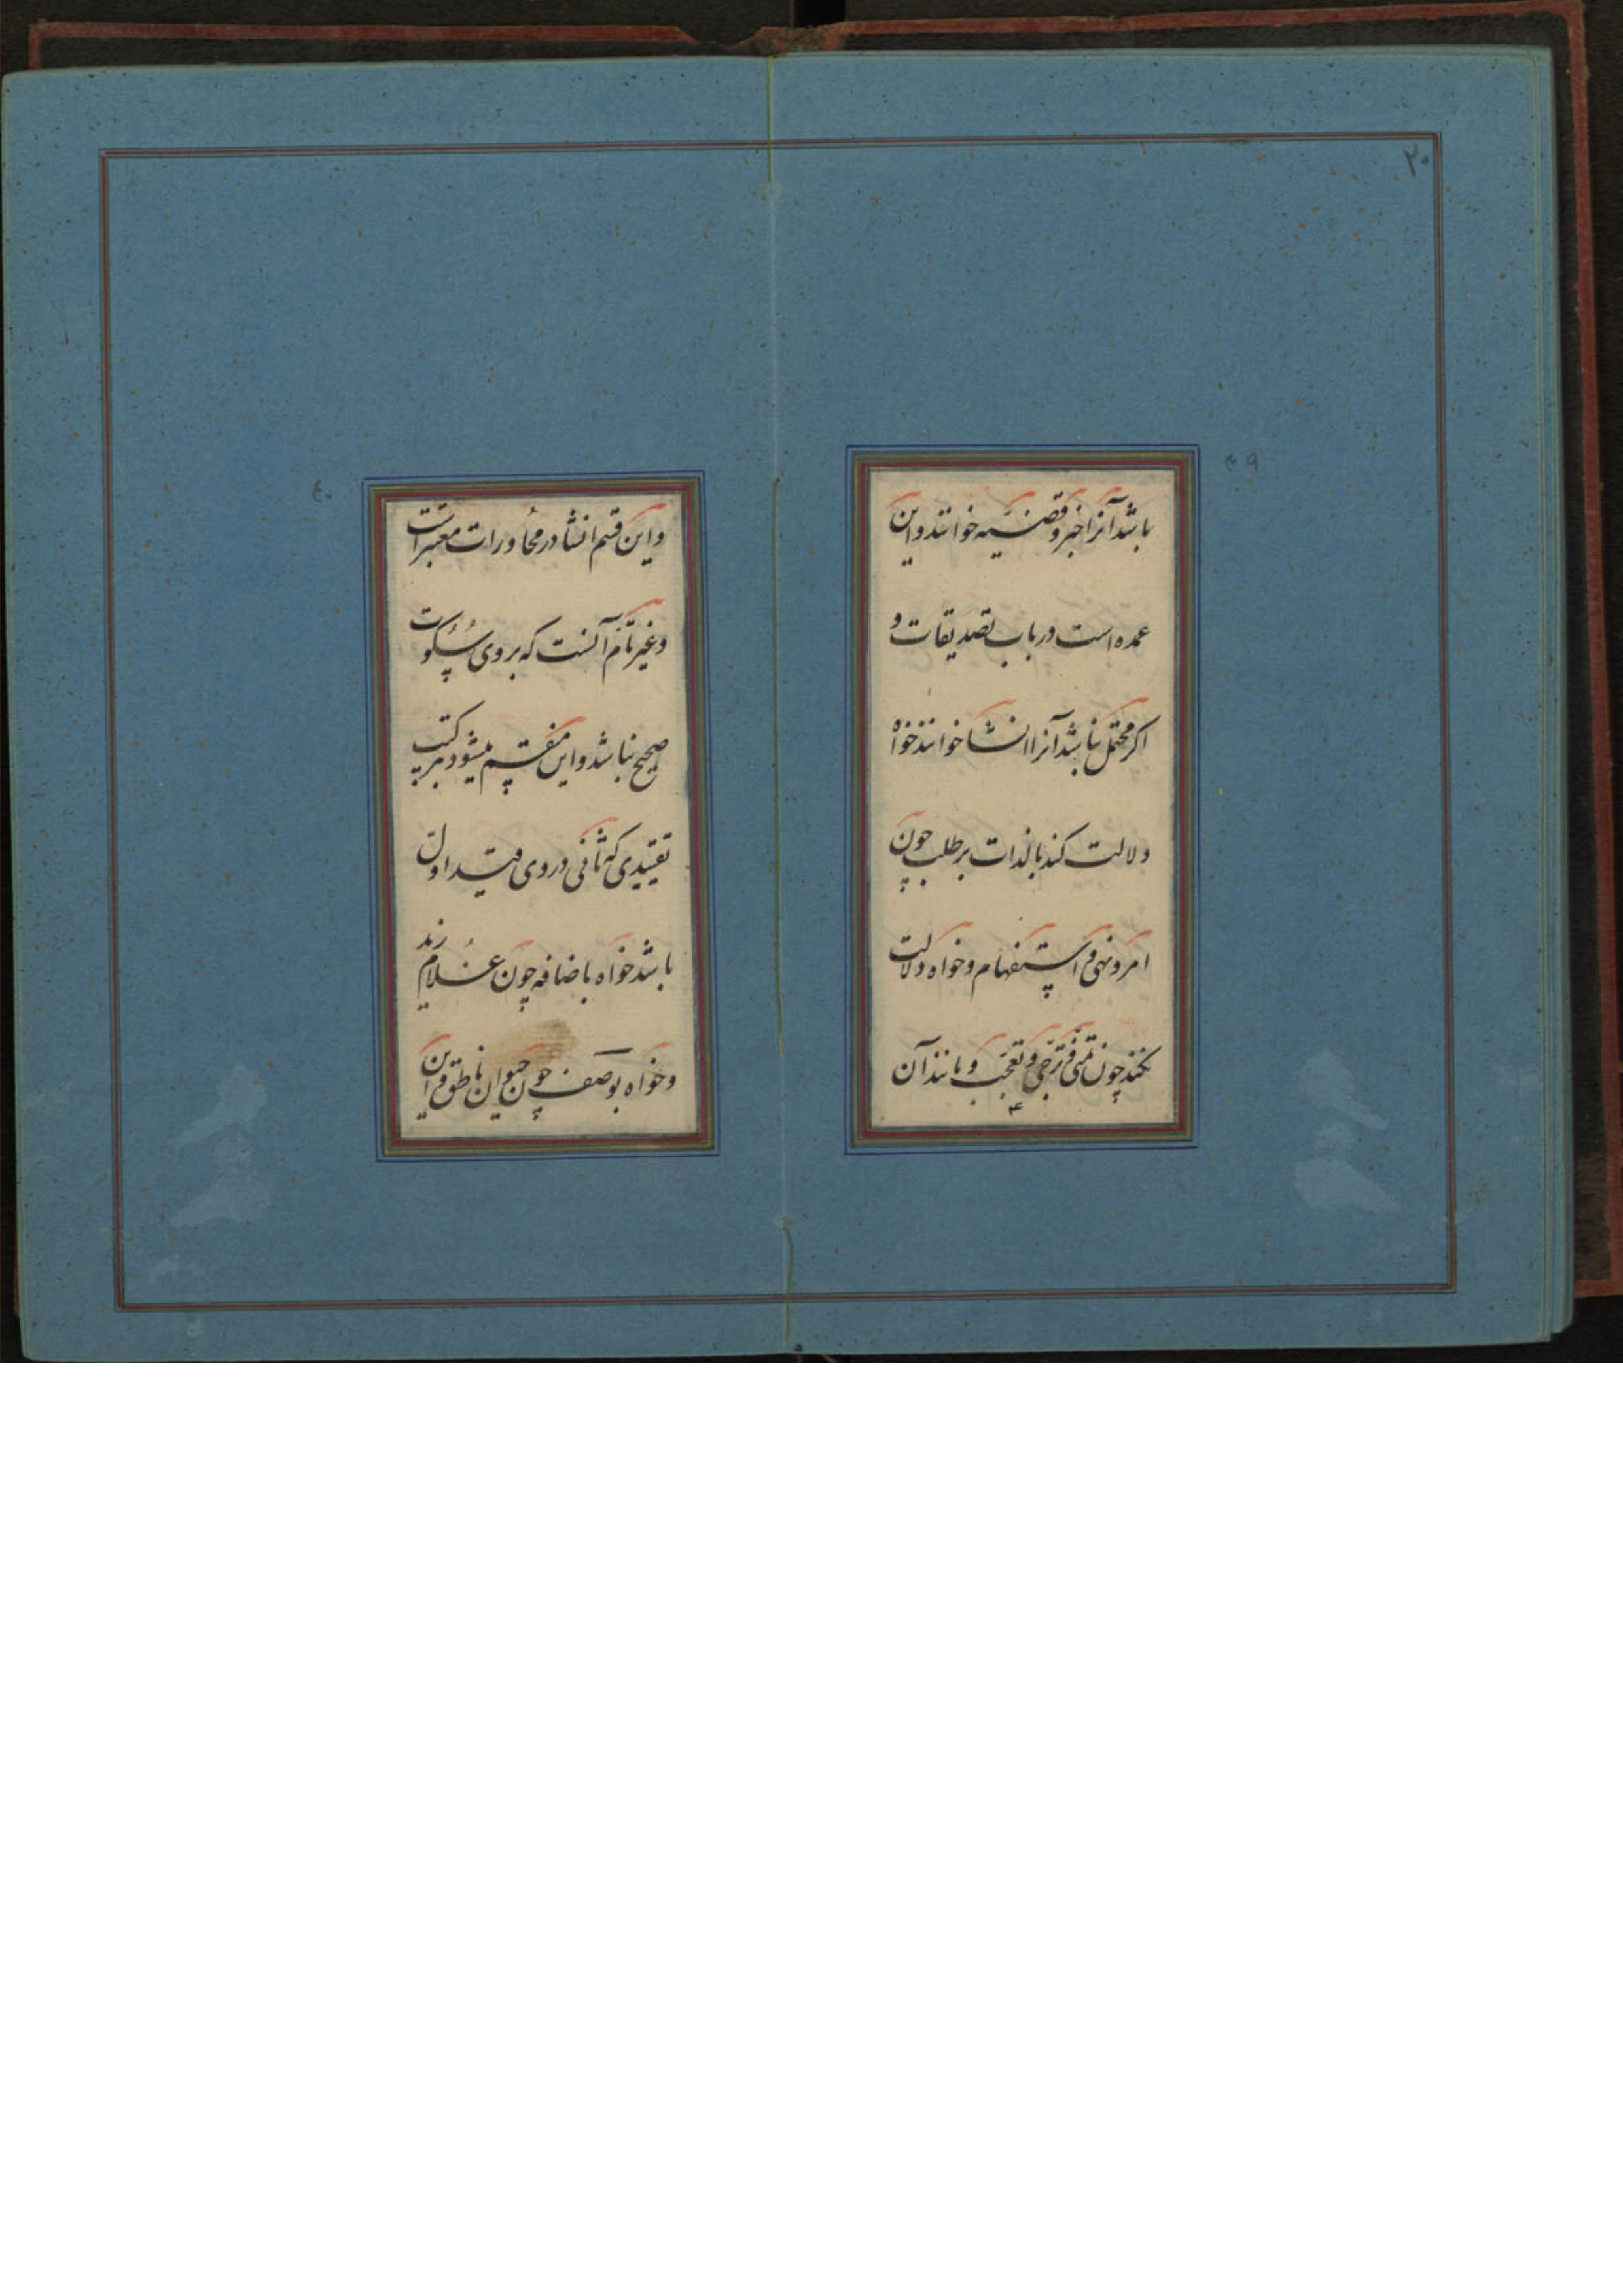 ۲۰
۳۹
باشد آنرا خبر و قضیه خوانند و این
عمده است در باب تصدیقات و
اکر محتمل نباشد آنرا انشا خوانند خواه
دلالت کند بالذات بر طلب چون
امر و نهی و استفهام و خواه دلالت
نکند چون تمنی و ترجی و تعجب و مانند آن
۴۰
و این قسم انشا در محاورات معتبر است
و غیر تام آنست که بر وی سکوت
صحیح نباشد و این منقسم میشود بمرکب
تقییدی که ثانی در وی قید اول
باشد خواه باضافه چون غلام زید
و خواه بوصف چون حیوان ناطق و این